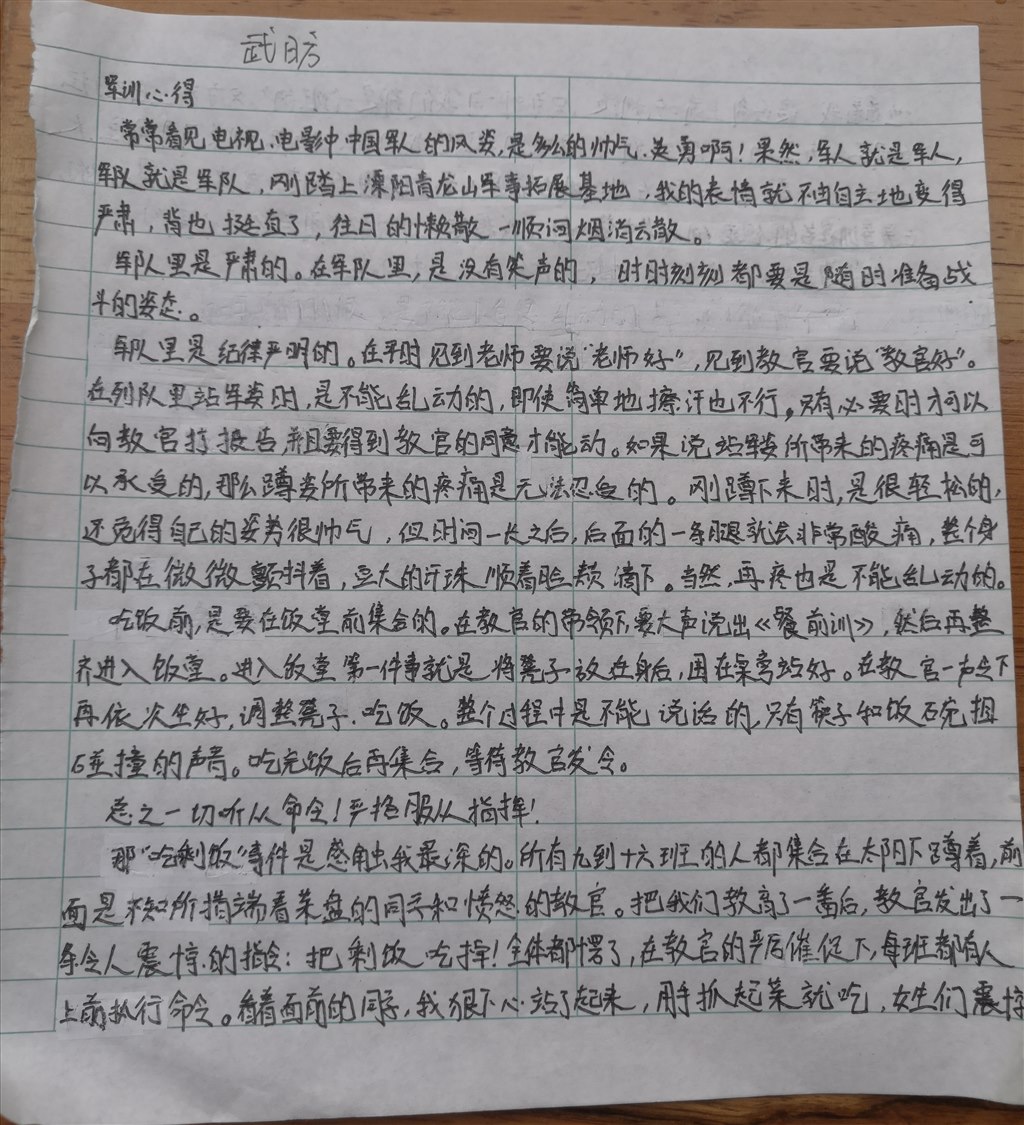 武昉
军训心得
常常看见电视、电影中中国军人的风姿,是多么的帅气、英勇啊!果然,军人就是军人,
军队就是军队,刚踏上溧阳青龙山军事拓展基地,我的表情就不由自主地变得
严肃,背也挺直了,往日的懒散一瞬间烟消云散。
军队里是严肃的。在军队里,是没有笑声的,时时刻刻都要是随时准备战
斗的姿态。
军队里是纪律严明的。在平时见到老师要说“老师好”,见到教官要说“教官好”。
在列队里站军姿时,是不能乱动的,即使简单地擦汗也不行。只有必要时才可以
向教官打报告并且要得到教官的同意才能动。如果说站军姿所带来的疼痛是可
以承受的,那么蹲姿所带来的疼痛是无法忍受的。刚蹲下来时,是很轻松的,
还觉得自己的姿势很帅气,但时间一长之后,后面的一条腿就会非常酸痛,整个身
子都在微微颤抖着,豆大的汗珠顺着脸颊滴下。当然,再疼也是不能乱动的。
吃饭前,是要在饭堂前集合的。在教官的带领下,要大声说出《餐前训》,然后再整
齐进入饭堂。进入饭堂第一件事就是将凳子放在身后,围在桌旁站好。在教官一声令下
再依次坐好,调整凳子、吃饭。整个过程中是不能说话的,只有筷子和饭碗相
碰撞的声音。吃完饭后再集合,等待教官发令。
总之一切听从命令!严格服从指挥!
那“吃剩饭”事件是感触我最深的。所有九到十六班的人都集合在太阳下蹲着,前
面是不知所措端着菜盘的同学和愤怒的教官。把我们教育了一番后,教官发出了一
条令人震惊的指令:把剩饭吃掉!全体都愣了,在教官的严厉催促下,每班都有人
上前执行命令。看着面前的同学,我狠下心站了起来,用手抓起菜就吃,女生们震惊